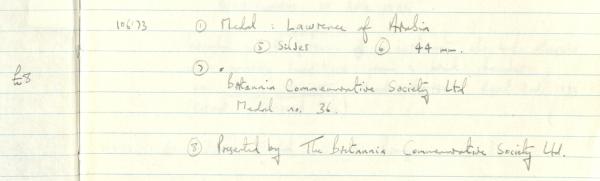 106'73 ① Medal : Lawrence of Arabia
⑤ Silver ⑥ 44 mm.
£8 ⑦ Britannia Commemorative Society Ltd
Medal no. 36.
⑧ Presented by The Britannia Commemorative Society Ltd.